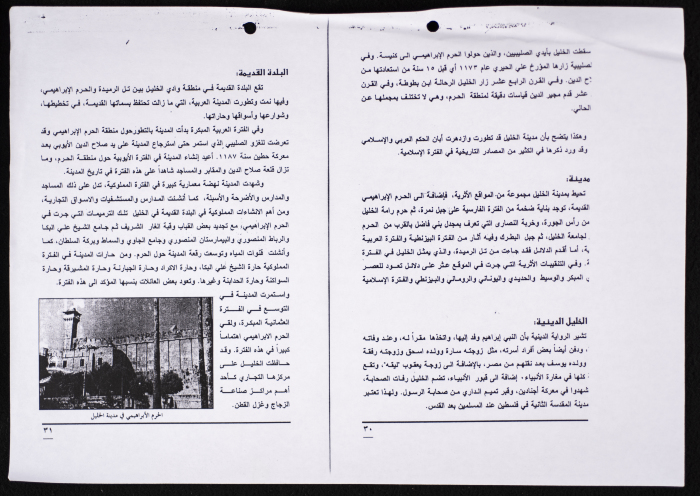 سقطت الخليل بأيدي الصليبيين، والذين حولوا الحرم الإبراهيمي الى كنيسة. وفي
صليبية زارها المؤرخ علي الحيري عام ١١٧٣ أي قبل ١٥ سنة من استعادتها من
ح الدين. وفي القرن الرابع عشر زار الخليل الرحالة ابن بطوطة، وفي القرن
عشر قدم مجير الدين قياسات دقيقة لمنطقة الحرم، وهي لا تختلف بمجملها عن
الحالي.
وهكذا يتضح بأن مدينة الخليل قد تطورت وازدهرت أبان الحكم العربي والإسلامي
وقد ورد ذكرها في الكثير من المصادر التاريخية في الفترة الإسلامية.
مدينة:
تحيط بمدينة الخليل مجموعة من المواقع الأثرية، فإضافة الى الحرم الإبراهيمي
القديمة، توجد بناية ضخمة من الفترة الفارسية على جبل نمرة، ثم حرم رامة الخليل
من رأس الجورة، وخربة النصارى التي تعرف بمجدل بني فاضل بالقرب من الحرم
لجامعة الخليل، ثم جبل البطرك وفيه آثار من الفترة البيزنطية والفترة العربية
ة، أما أقدم الدلائل فقد جاءت من تل الرميدة، والذي يمثل الخليل في الفترة
ة. وفي التنقيبات الأثرية التي جرت في الموقع عشر على دلائل تعود للعصر
ي المبكر والوسيط والحديدي واليوناني والروماني والبيزنطي والفترة الإسلامية
الخليل الدينية:
تشير الرواية الدينية بأن النبي إبراهيم وفد إليها، واتخذها مقراً له، وعند وفاته
ودفن أيضاً بعض أفراد أسرته، مثل زوجته سارة وولده اسحق وزوجته رفقة
وولده يوسف بعد نقلهم من مصر، بالإضافة الى زوجة يعقوب "ليقه"، وتقع
كنها في مغارة الأنبياء، إضافة الى قبور الأنبياء، تضم الخليل رفات الصحابة،
شهدوا في معركة أجنادين، وقبر تميم الداري من صحابة الرسول. ولهذا تعتبر
مدينة المقدسة الثانية في فلسطين عند المسلمين بعد القدس.
٣٠
البلدة القديمة:
تقع البلدة القديمة في منطقة وادي الخليل بين تل الرميدة والحرم الإبراهيمي،
وفيها نمت وتطورت المدينة العربية، التي ما زالت تحتفظ بسماتها القديمة، في تخطيطها،
وشوارعها وأسواقها وحاراتها.
وفي الفترة العربية المبكرة بدأت المدينة بالتطورحول منطقة الحرم الإبراهيمي وقد
تعرضت للغزو الصليبي الذي استمر حتى استرجاع المدينة على يد صلاح الدين الأيوبي بعد
معركة حطين سنة ١١٨٧. أعيد إنشاء المدينة في الفترة الأيوبية حول منطقة الحرم، وما
تزال قلعة صلاح الدين والمقابر والمساجد شاهداً على هذه الفترة في تاريخ المدينة.
وشهدت المدينة نهضة معمارية كبيرة في الفترة المملوكية، تدل على ذلك المساجد
والمدارس والأضرحة والأسبلة، كما أنشئت المدارس والمستشفيات والاسواق التجارية،
ومن أهم الانشاءات المملوكية في البلدة القديمة في الخليل تلك الترميمات التي جرت في
الحرم الإبراهيمي، مع تجديد بعض القباب وقبة الغار الشريف ثم جامع الشيخ علي البكا
والرباط المنصوري والبيمارستان المنصوري وجامع الجاوي والسماط وبركة السلطان، كما
وأنشئت قنوات المياه وتوسعت رقعة المدينة حول الحرم. ومن حارات المدينة في الفترة
المملوكية حارة الشيخ علي البكا، وحارة الاكراد وحارة الجبارنة وحارة المشيرقة وحارة
السواكنة وحارة الحدابنة وغيرها. وتعود بعض العائلات بنسبها المؤكد الى هذه الفترة.
واستمرت المدينة في
التوسع في الفترة
العثمانية المبكرة، ولقي
الحرم الابراهيمي اهتماماً
كبيراً في هذه الفترة. وقد
حافظت الخليل على
مركزها التجاري كأحد
أهم مراكز صناعة
الزجاج وغزل القطن.
الحرم الأبراهيمي في مدينة الخليل
٣١